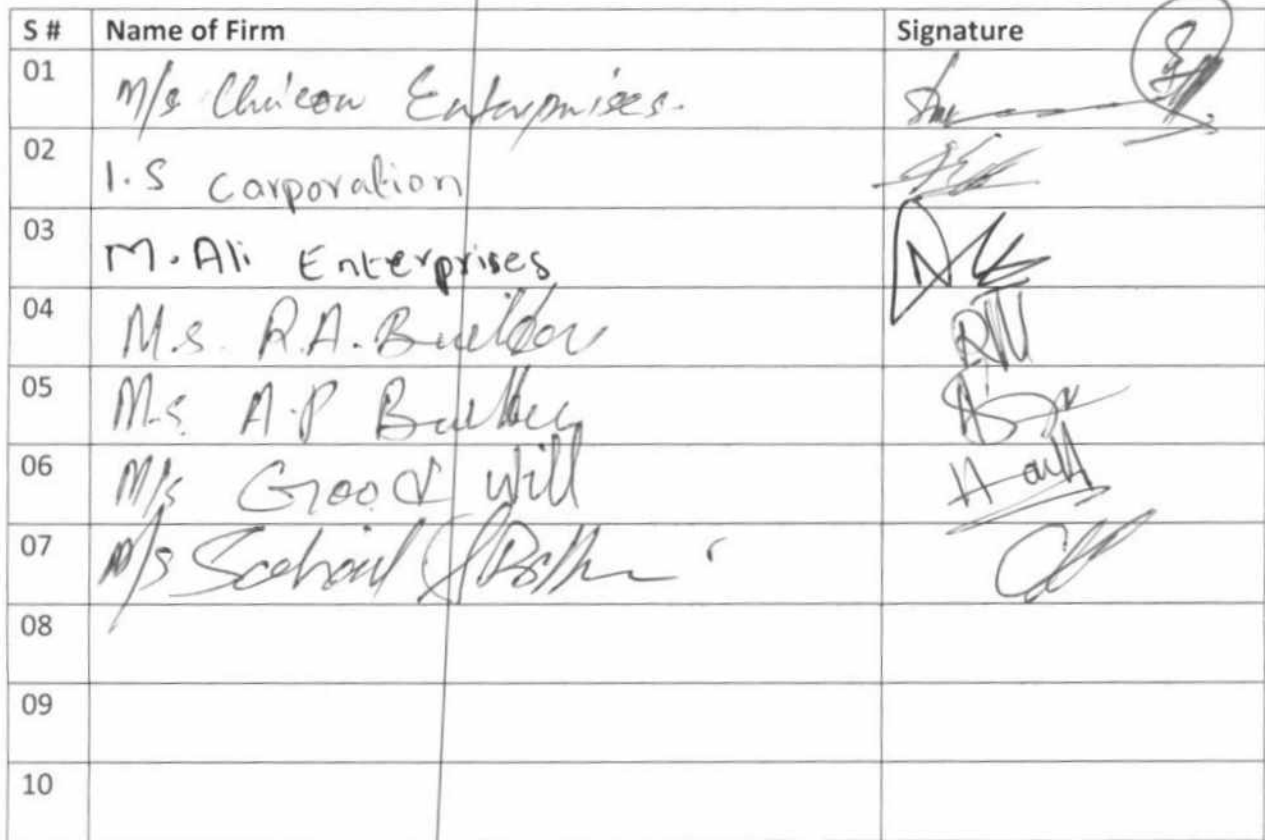 S # Name of Firm Signature
01 M/s Enterprises.
02 I.S Carporation
03 M. Ali Enterprises
04 M.s. R.A. Builder
05 M.s. A.P Builder
06 M/s Good Will
07 M/s Sohail &
08
09
10